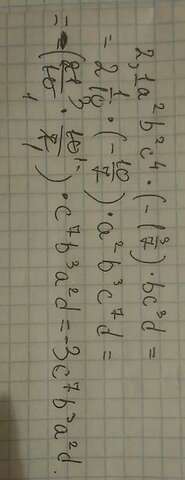 2,1a²b²c⁴ · (-1 3/7) · bc³d =
= 2 1/10 · (-10/7) · a²b³c⁷d =
= -(21/10 · 10/7) · c⁷b³a²d = -3c⁷b³a²d.